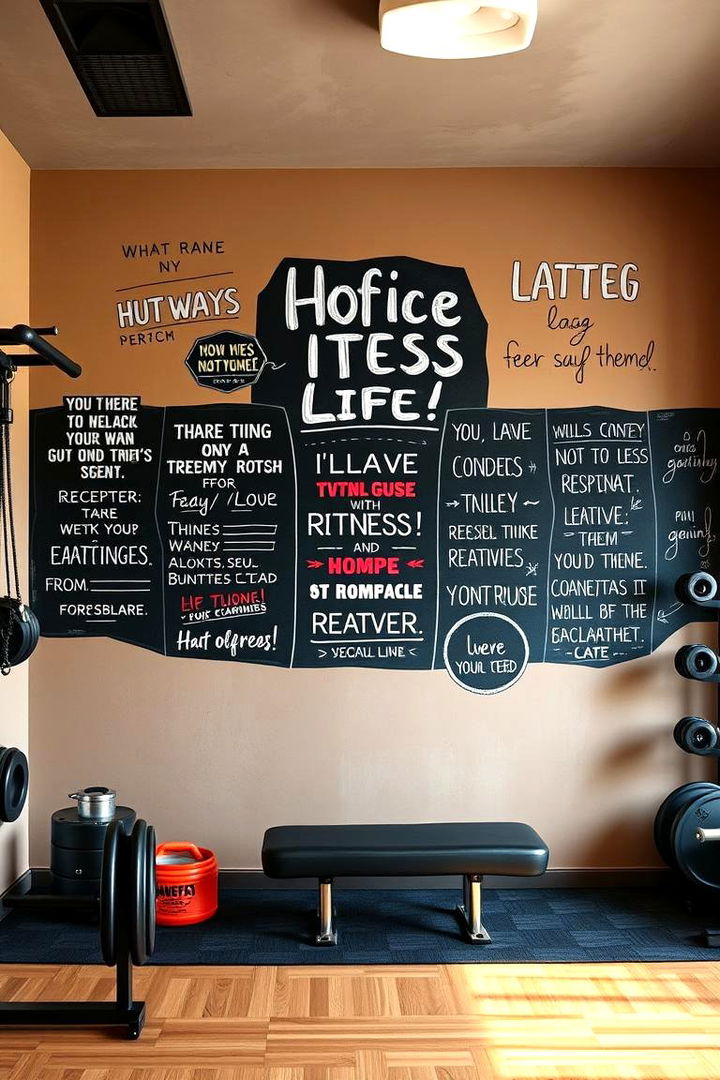 WHAT RANE
NY
HUTWAYS
PERTCM
LATTEG
laag
feer say themd.
Hofice
ITESS
LIFE!
YOU THERE
TO NELACK
YOUR WAN
GUT OND TRIFI'S
SCENT.
RECEPTER:
TARE
WETK YOUP
EAATTINGES.
FROM:
FORESBLARE.
THARE TIING
ONY A
TREEMY ROTSH
FFOR
Feay/ /LOVE
THINES
WANEY
ALOKTS, SEU..
BUNTTES CTAD
Hart olfrees!
I'LLAVE
TVTNL GUSE
WITH
RITNESS!
AND
HOMPE
ST ROMPACLE
REATVER.
> YECALL LINE <
YOU, LAVE
CONDECS
TNILLEY
REESEL THIKE
REATIVES,
YONTRUSE
Lvere
YOUR TEED
WULLS CANEY
NOT TO LESS
RESPTNAT.
LEATIVE:
THEM
YOU'D THENE.
COANETTAS II
WOLLL BF THE
EACLAATHET.
CATE